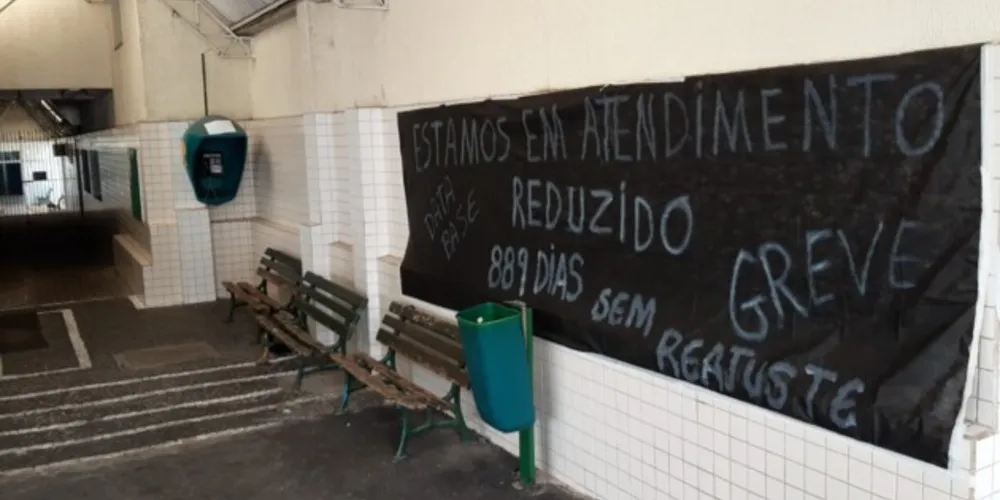 ESTAMOS EM ATENDIMENTO
REDUZIDO
DATA
BASE
889 DIAS
SEM
REAJUSTE
GREVE